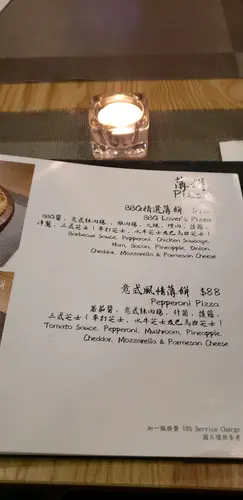 薄餅
Pizza
BBQ精選薄餅
BBQ Lover's Pizza
BBQ醬，意式辣肉腸，雞肉腸，火腿，煙肉，菠蘿，
洋蔥，三式芝士（車打芝士，水牛芝士及巴馬臣芝士）
Barbecue Sauce, Pepperoni, Chicken Sausage,
Ham, Bacon, Pineapple, Onion,
Cheddar, Mozzarella & Parmesan Cheese
意式風情薄餅 $88
Pepperoni Pizza
蕃茄醬，意式辣肉腸，什菌，菠蘿，
三式芝士（車打芝士，水牛芝士及巴馬臣芝士）
Tomato Sauce, Pepperoni, Mushroom, Pineapple,
Cheddar, Mozzarella & Parmesan Cheese
加一服務費 10% Service Charge
圖片僅供參考